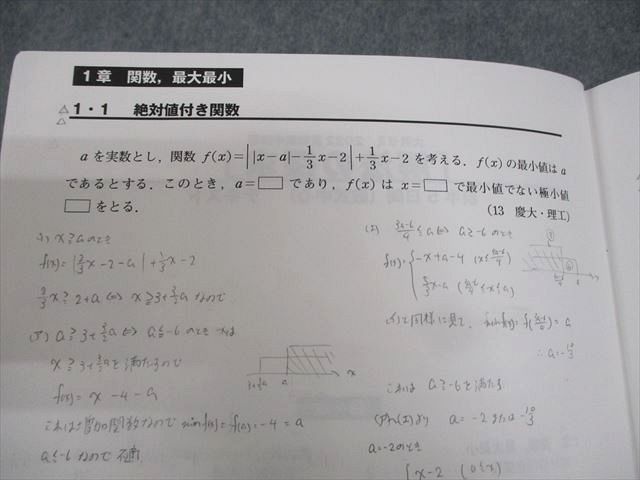 1章 関数，最大最小
△1・1 絶対値付き関数
△
aを実数とし，関数 f(x)=||x−a|−1/3x−2|+1/3x−2 を考える．f(x)の最小値はa
であるとする．このとき，a=□ であり，f(x) は x=□ で最小値でない極小値
□をとる．
(13 慶大・理工)
x≧aのとき
f(x)=|2/3x−2−a|+1/3x−2
2/3x≧2+a⇔x≧3+3/2a なので
a≧3+3/2a⇔a≦−6のとき
x≧3+3/2aを満たすので
f(x)=x−4−a
これは増加関数なので minf(x)=f(a)=−4=a
a≦−6なので不適
3+3/2a a x
≦a⇔a≧−6のとき
f(x)={−x+a−4
5/3x−a
と同様に見て，
∴a=−10/3
これは a≧−6を満たす
より a=−2または−10/3
a=−2のとき
{x−2 (0≦x)